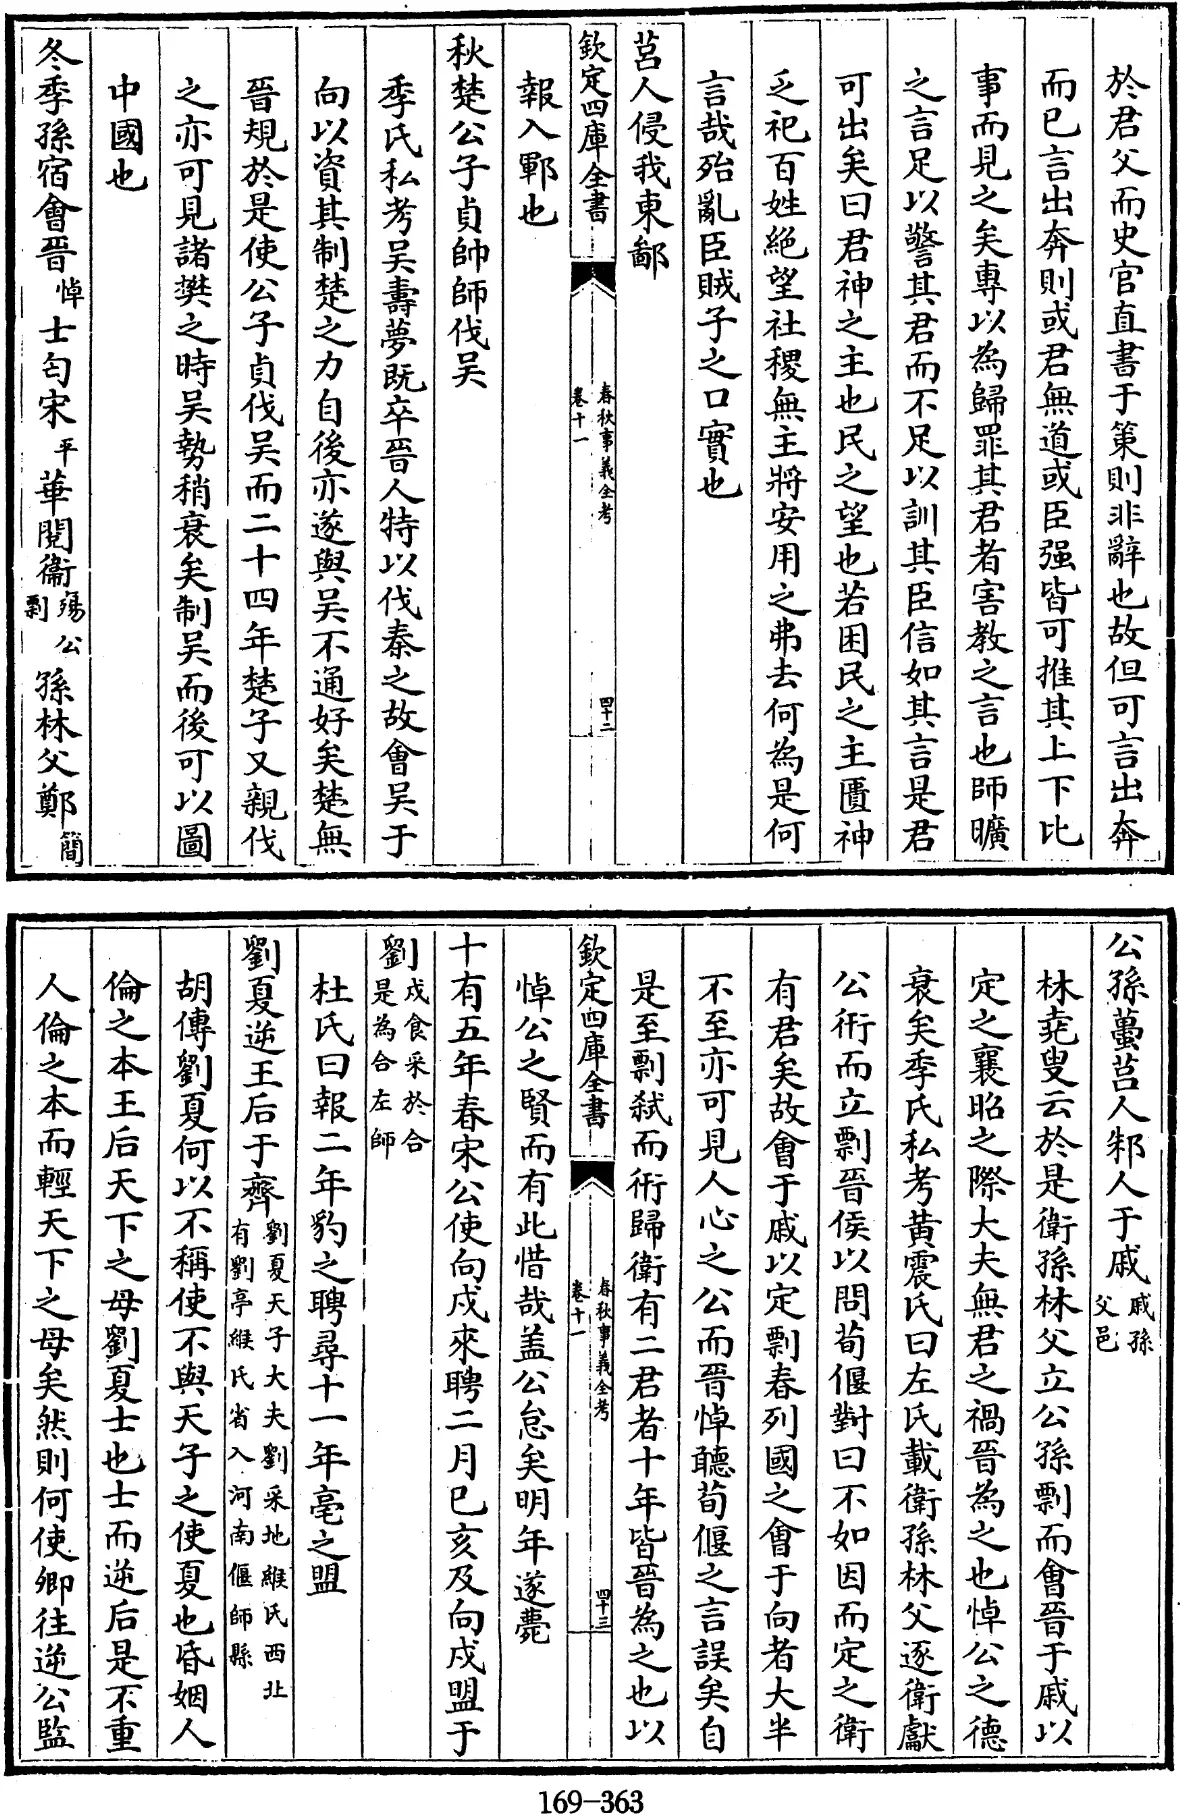 於君父而史官直書于策則非辭也故但可言出奔
而已言出奔則或君無道或臣强皆可推其上下比
事而見之矣專以為歸罪其君者害教之言也師曠
之言足以警其君而不足以訓其臣信如其言是君
可出矣曰君神之主也民之望也若困民之主匱神
乏祀百姓絶望社稷無主將安用之弗去何為是何
言哉殆亂臣賊子之口實也
莒人侵我東鄙
欽定四庫全書
春秋事義全考
卷十一
四十二
報入鄆也
秋楚公子貞帥師伐吴
季氏私考吴壽夢既卒晉人特以伐秦之故會吴于
向以資其制楚之力自後亦遂與吴不通好矣楚無
晉規於是使公子貞伐吴而二十四年楚子又親伐
之亦可見諸樊之時吴勢稍衰矣制吴而後可以圖
中國也
冬季孫宿會晉悼士匄宋平華閱衞殤公剽孫林父鄭簡
公孫蠆莒人邾人于戚戚孫父邑
林堯叟云於是衛孫林父立公孫剽而會晉于戚以
定之襄昭之際大夫無君之禍晉為之也悼公之德
衰矣季氏私考黄震氏曰左氏載衛孫林父逐衛獻
公衎而立剽晉侯以問荀偃對曰不如因而定之衛
有君矣故會于戚以定剽春列國之會于向者大半
不至亦可見人心之公而晉悼聽荀偃之言誤矣自
是至剽弑而衎歸衛有二君者十年皆晉為之也以
欽定四庫全書
春秋事義全考
卷十一
四十三
悼公之賢而有此惜哉盖公怠矣明年遂薨
十有五年春宋公使向戌來聘二月已亥及向戌盟于
劉戌食采於合是為合左師
杜氏曰報二年豹之聘尋十一年亳之盟
劉夏逆王后于齊劉夏天子大夫劉采地緱氏西北有劉亭緱氏省入河南偃師縣
胡傳劉夏何以不稱使不與天子之使夏也昏姻人
倫之本王后天下之母劉夏士也士而逆后是不重
人倫之本而輕天下之母矣然則何使卿往逆公監
169-363